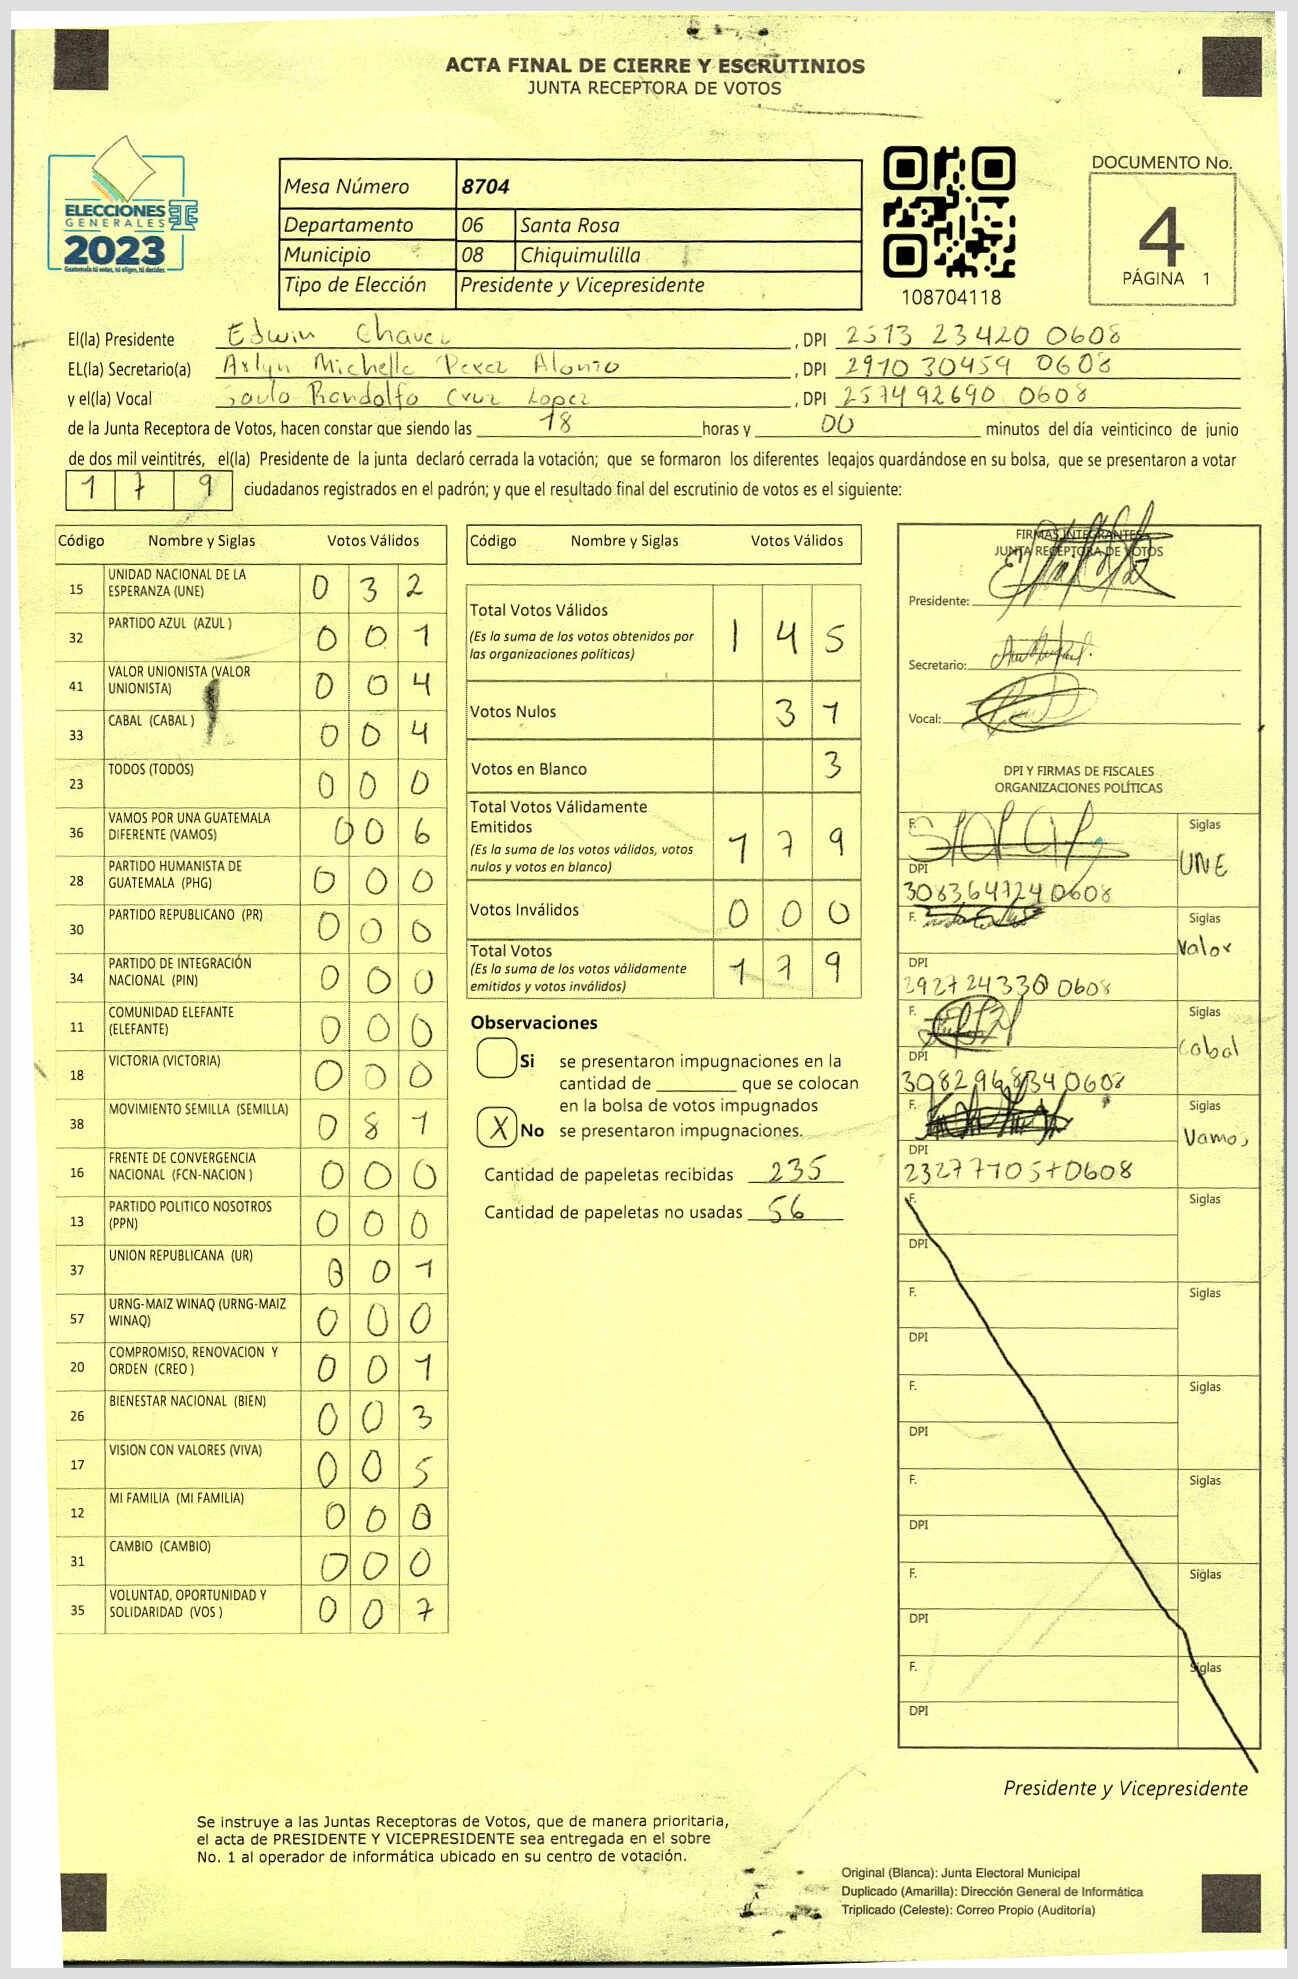 ACTA FINAL DE CIERRE Y ESCRUTINIOS
JUNTA RECEPTORA DE VOTOS
ELECCIONES
GENERALES
2023
Guatemala tú votas, tú eliges, tú decides
Mesa Número 8704
Departamento 06 Santa Rosa
Municipio 08 Chiquimulilla
Tipo de Elección Presidente y Vicepresidente
108704118
DOCUMENTO No.
4
PÁGINA 1
El(la) Presidente Edwin Chavez, DPI 2513 23420 0608
EL(la) Secretario(a) Arlyn Michelle Perez Alonzo, DPI 2910 30459 0608
y el(la) Vocal Saulo Randolfo Cruz Lopez, DPI 2574 92690 0608
de la Junta Receptora de Votos, hacen constar que siendo las 18 horas y 00 minutos del día veinticinco de junio
de dos mil veintitrés, el(la) Presidente de la junta declaró cerrada la votación; que se formaron los diferentes legajos guardándose en su bolsa, que se presentaron a votar
1 7 9 ciudadanos registrados en el padrón; y que el resultado final del escrutinio de votos es el siguiente:
Código Nombre y Siglas Votos Válidos
15 UNIDAD NACIONAL DE LA ESPERANZA (UNE) 0 3 2
32 PARTIDO AZUL (AZUL ) 0 0 1
41 VALOR UNIONISTA (VALOR UNIONISTA) 0 0 4
33 CABAL (CABAL ) 0 0 4
23 TODOS (TODOS) 0 0 0
36 VAMOS POR UNA GUATEMALA DIFERENTE (VAMOS) 0 0 6
28 PARTIDO HUMANISTA DE GUATEMALA (PHG) 0 0 0
30 PARTIDO REPUBLICANO (PR) 0 0 0
34 PARTIDO DE INTEGRACIÓN NACIONAL (PIN) 0 0 0
11 COMUNIDAD ELEFANTE (ELEFANTE) 0 0 0
18 VICTORIA (VICTORIA) 0 0 0
38 MOVIMIENTO SEMILLA (SEMILLA) 0 8 1
16 FRENTE DE CONVERGENCIA NACIONAL (FCN-NACION ) 0 0 0
13 PARTIDO POLITICO NOSOTROS (PPN) 0 0 0
37 UNION REPUBLICANA (UR) 0 0 1
57 URNG-MAIZ WINAQ (URNG-MAIZ WINAQ) 0 0 0
20 COMPROMISO, RENOVACION Y ORDEN (CREO ) 0 0 1
26 BIENESTAR NACIONAL (BIEN) 0 0 3
17 VISION CON VALORES (VIVA) 0 0 5
12 MI FAMILIA (MI FAMILIA) 0 0 0
31 CAMBIO (CAMBIO) 0 0 0
35 VOLUNTAD, OPORTUNIDAD Y SOLIDARIDAD (VOS ) 0 0 7
Código Nombre y Siglas Votos Válidos
Total Votos Válidos 1 4 5
(Es la suma de los votos obtenidos por
las organizaciones políticas)
Votos Nulos 3 1
Votos en Blanco 3
Total Votos Válidamente
Emitidos 1 7 9
(Es la suma de los votos válidos, votos
nulos y votos en blanco)
Votos Inválidos 0 0 0
Total Votos 1 7 9
(Es la suma de los votos válidamente
emitidos y votos inválidos)
Observaciones
Si se presentaron impugnaciones en la
cantidad de ________ que se colocan
en la bolsa de votos impugnados
X No se presentaron impugnaciones.
Cantidad de papeletas recibidas 235
Cantidad de papeletas no usadas 56
FIRMAS INTEGRANTES
JUNTA RECEPTORA DE VOTOS
Presidente:
Secretario:
Vocal:
DPI Y FIRMAS DE FISCALES
ORGANIZACIONES POLÍTICAS
F. Siglas
UNE
DPI
3083647240608
F. Siglas
Valor
DPI
2927243300608
F. Siglas
Cabal
DPI
3082968340608
F. Siglas
Vamos
DPI
2327710570608
F. Siglas
DPI
F. Siglas
DPI
F. Siglas
DPI
F. Siglas
DPI
F. Siglas
DPI
F. Siglas
DPI
Presidente y Vicepresidente
Se instruye a las Juntas Receptoras de Votos, que de manera prioritaria,
el acta de PRESIDENTE Y VICEPRESIDENTE sea entregada en el sobre
No. 1 al operador de informática ubicado en su centro de votación.
Original (Blanca): Junta Electoral Municipal
Duplicado (Amarilla): Dirección General de Informática
Triplicado (Celeste): Correo Propio (Auditoría)